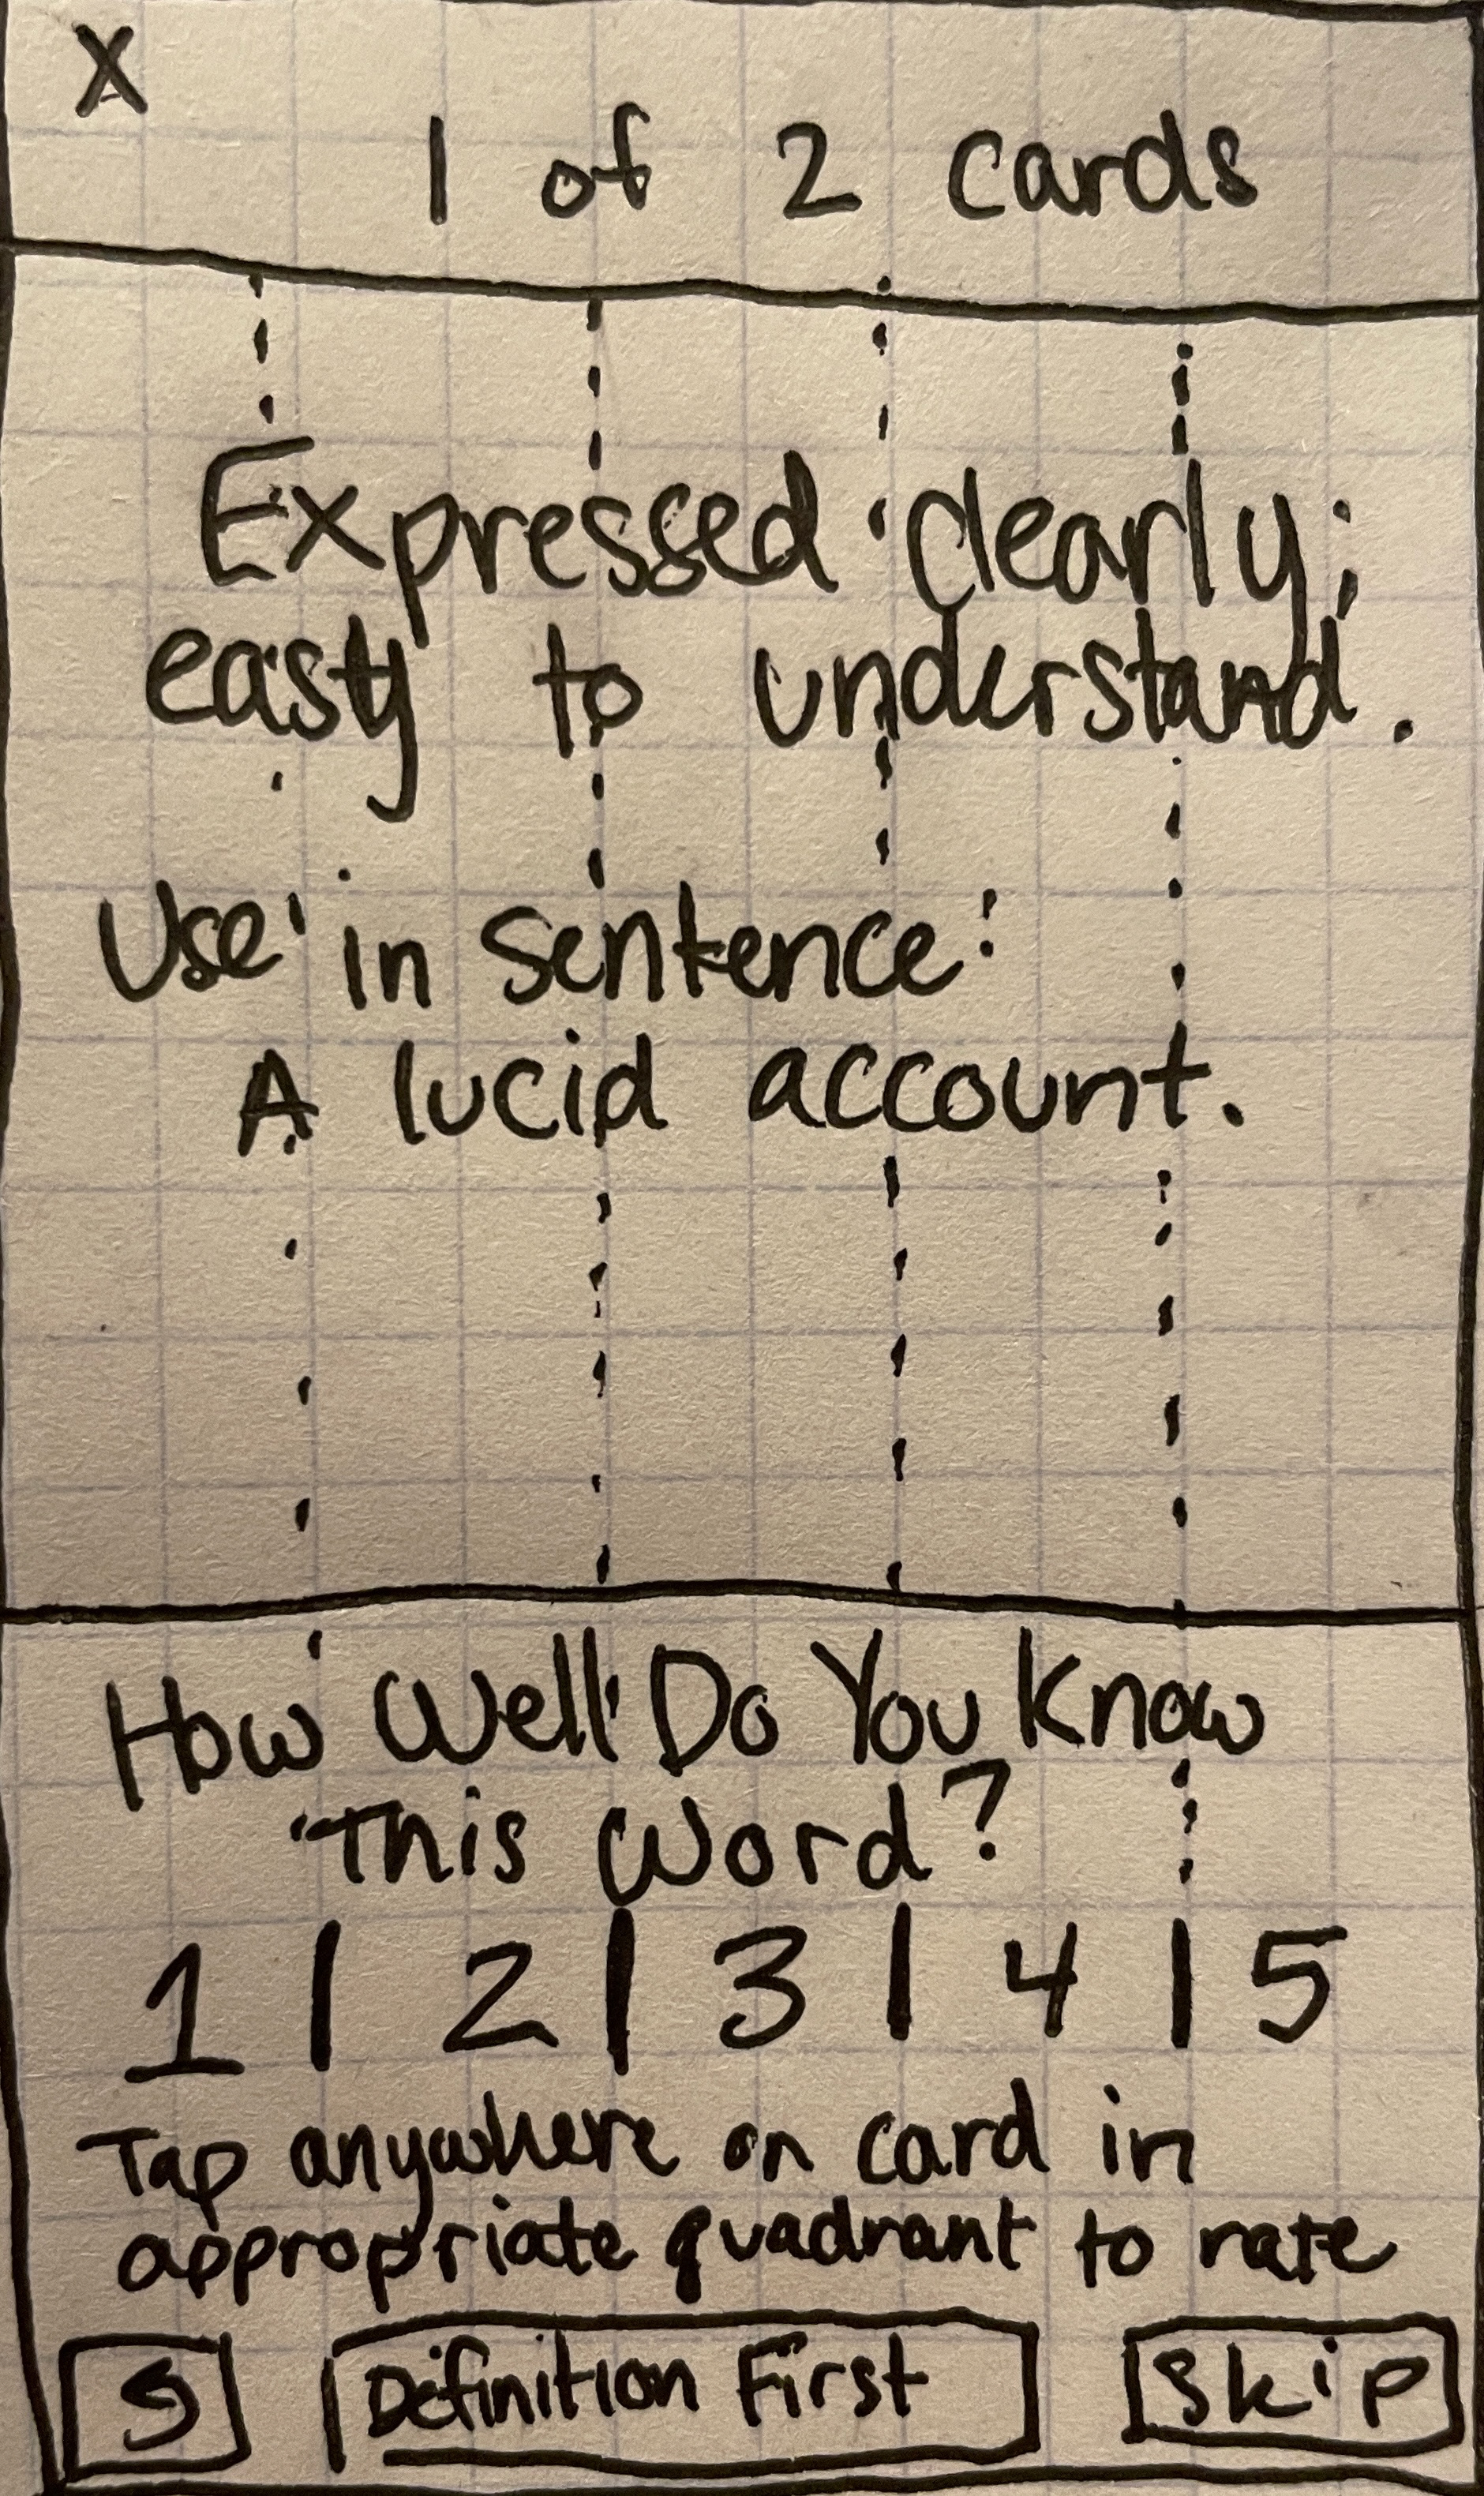 X
1 of 2 cards
Expressed clearly;
easy to understand.
Use in sentence:
A lucid account.
How Well Do You Know
This Word?
1 | 2 | 3 | 4 | 5
Tap anywhere on card in
appropriate quadrant to rate
Definition First Skip